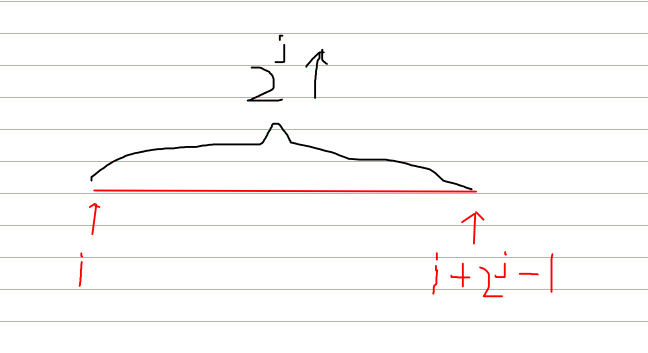 2^j 个
i
i+2^j-1